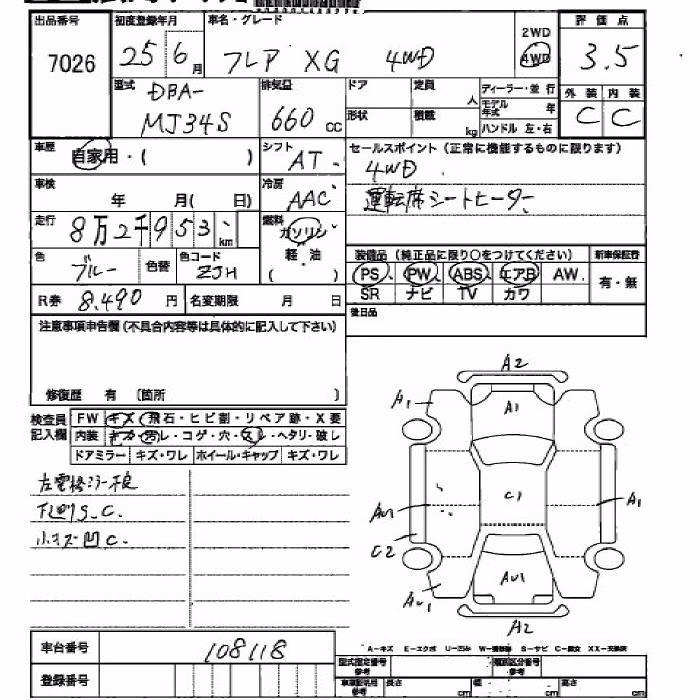 出品番号 初度登録年月 車名・グレード 2WD 評価点
7026 25 6月 フレア XG 4WD 4WD 3.5
型式 DBA- 排気量 ドア 定員 人 ディーラー・並行 外装 内装
MJ34S 660 cc 形状 積載 kg モデル年式 年 C C
ハンドル 左・右
車歴 自家用・( ) シフト AT セールスポイント(正常に機能するものに限ります)
4WD
車検 年 月( 日) 冷房 AAC 運転席シートヒーター
走行 8万2千953 km 燃料 ガソリン
軽油
( )
装備品(純正品に限り○をつけてください) 新車保証書
色 ブルー 色替 色コード ZJH PS PW ABS エアB AW 有・無
R券 8.490 円 名変期限 月 日 SR ナビ TV カワ
注意事項申告欄(不具合内容等は具体的に記入して下さい) 後日品
修復歴 有 〔箇所 〕
検査員記入欄 FW キズ・飛石・ヒビ割・リペア跡・X要
内装 キズ・汚レ・コゲ・穴・スレ・ヘタリ・破レ
ドアミラー キズ・ワレ ホイール・キャップ キズ・ワレ
左電格ミラー不良
下回りS.C.
小キズ凹C.
A2
A1 A1
C1
AU1 A1
C2
AU1
AU1
A2
A-キズ E-エクボ U-凹み W-補修跡 S-サビ C-腐食 XX-交換済
車台番号 108118 型式指定番号 参考 類別区分番号 参考
登録番号 長さ cm 幅 cm 高さ cm